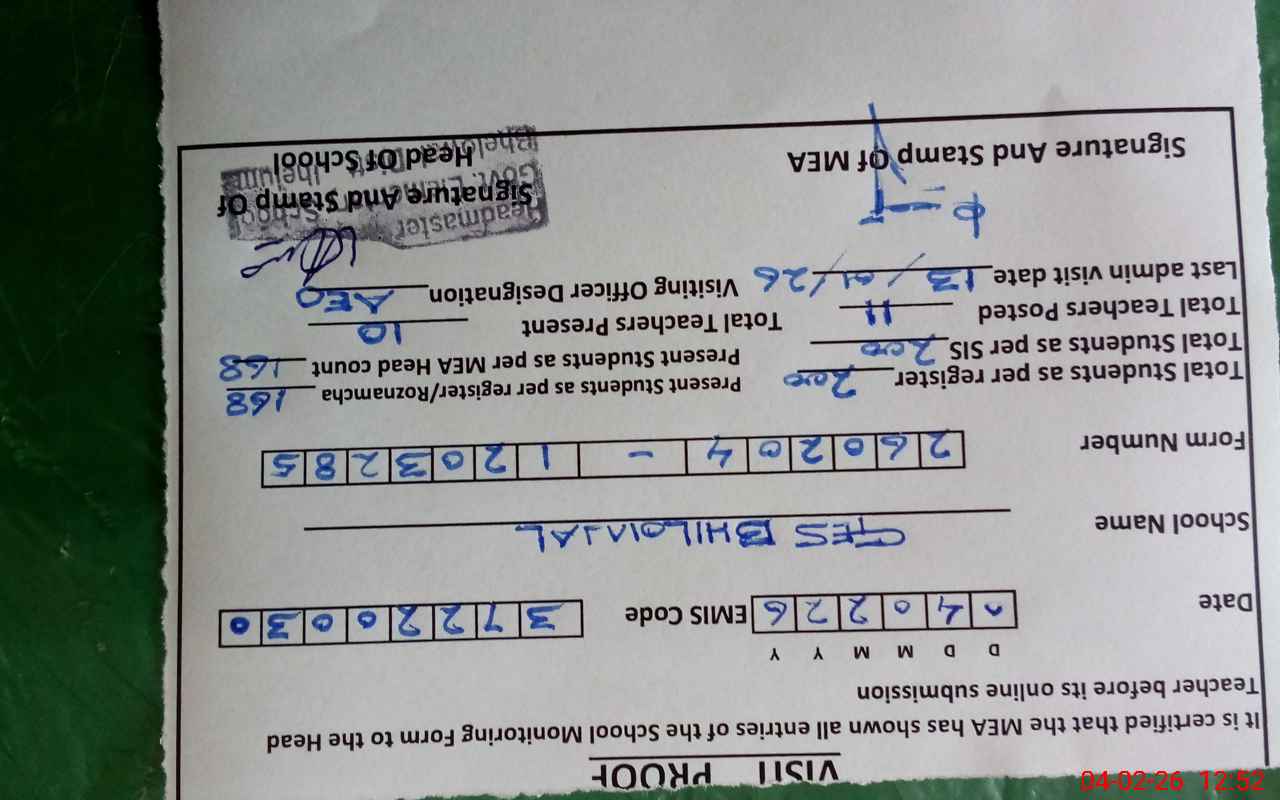 VISIT PROOF
It is certified that the MEA has shown all entries of the School Monitoring Form to the Head
Teacher before its online submission
D D M M Y Y
Date 0 4 0 2 2 6 EMIS Code 3 7 2 2 0 0 3 0
School Name GES BHILOWAL
Form Number 2 6 0 2 0 4 - 1 2 0 3 2 8 5
Total Students as per register 200 Present Students as per register/Roznamcha 168
Total Students as per SIS 200 Present Students as per MEA Head count 168
Total Teachers Posted 11 Total Teachers Present 10
Last admin visit date 13/01/26 Visiting Officer Designation AEO
Headmaster
Signature And Stamp Of MEA Signature And Stamp Of
Head Of School
Govt. School
Jhelum
04-02-26 12:52